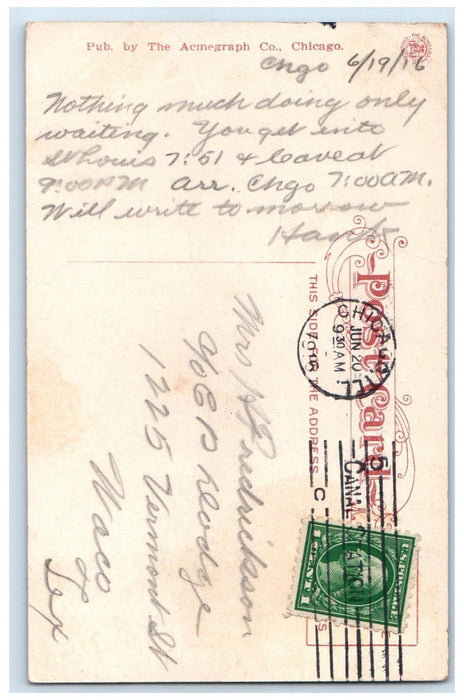 Pub. by The Acmegraph Co., Chicago.
Chgo 6/19/16
Nothing much doing only
waiting. You get into
St Louis 7:51 & leave at
9:00 PM arr. Chgo 7:00 AM.
Will write to morrow
Hank
Post Card
THIS SIDE FOR THE ADDRESS
CHICAGO, ILL
JUN 20
9 30 AM
1916
5
CANAL
STATION
C
Mrs H Fredrickson
c/o E B Dodge
1225 Vermont St
Waco
Tex
U.S. POSTAGE
1 CENT 1